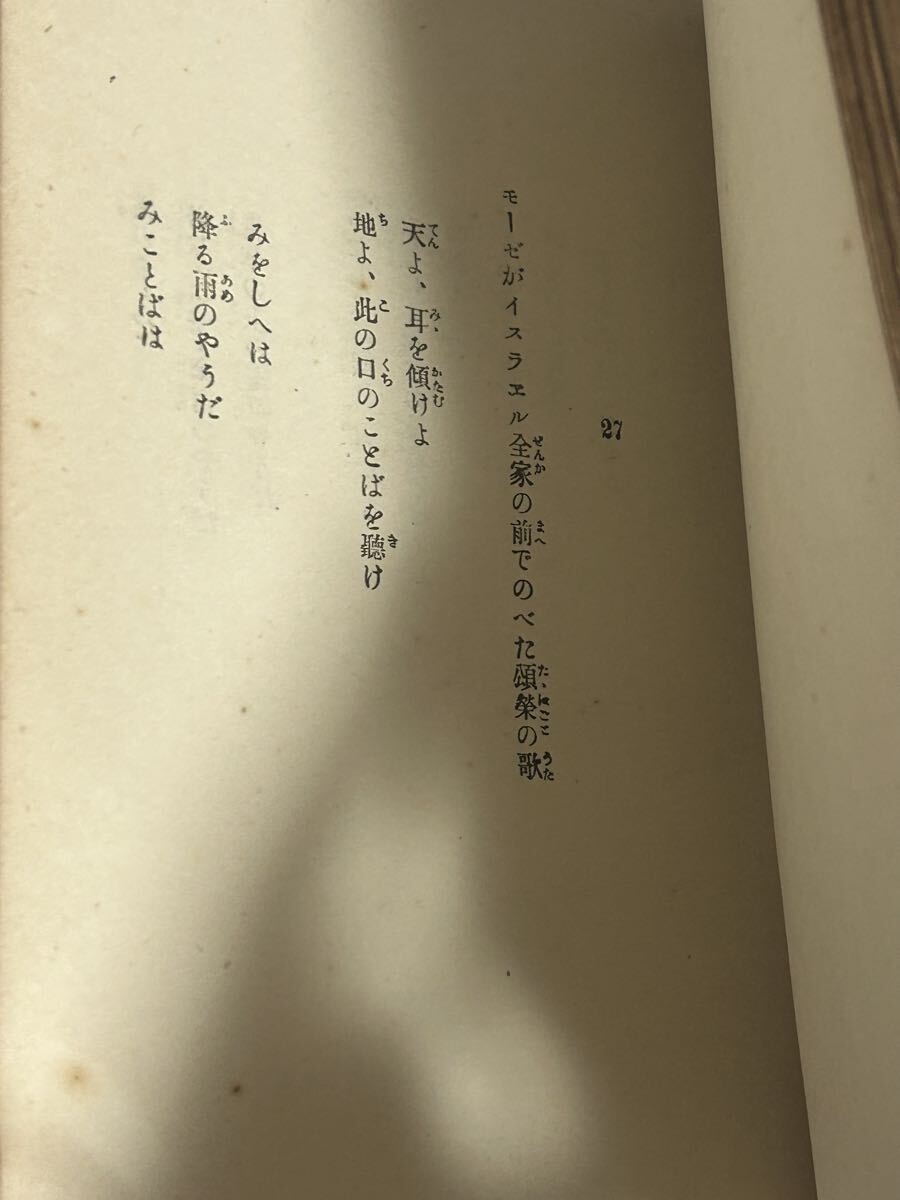 27
モーゼがイスラエル全家の前でのべた頌榮の歌
天よ、耳を傾けよ
地よ、此の口のことばを聽け
みをしへは
降る雨のやうだ
みことばは